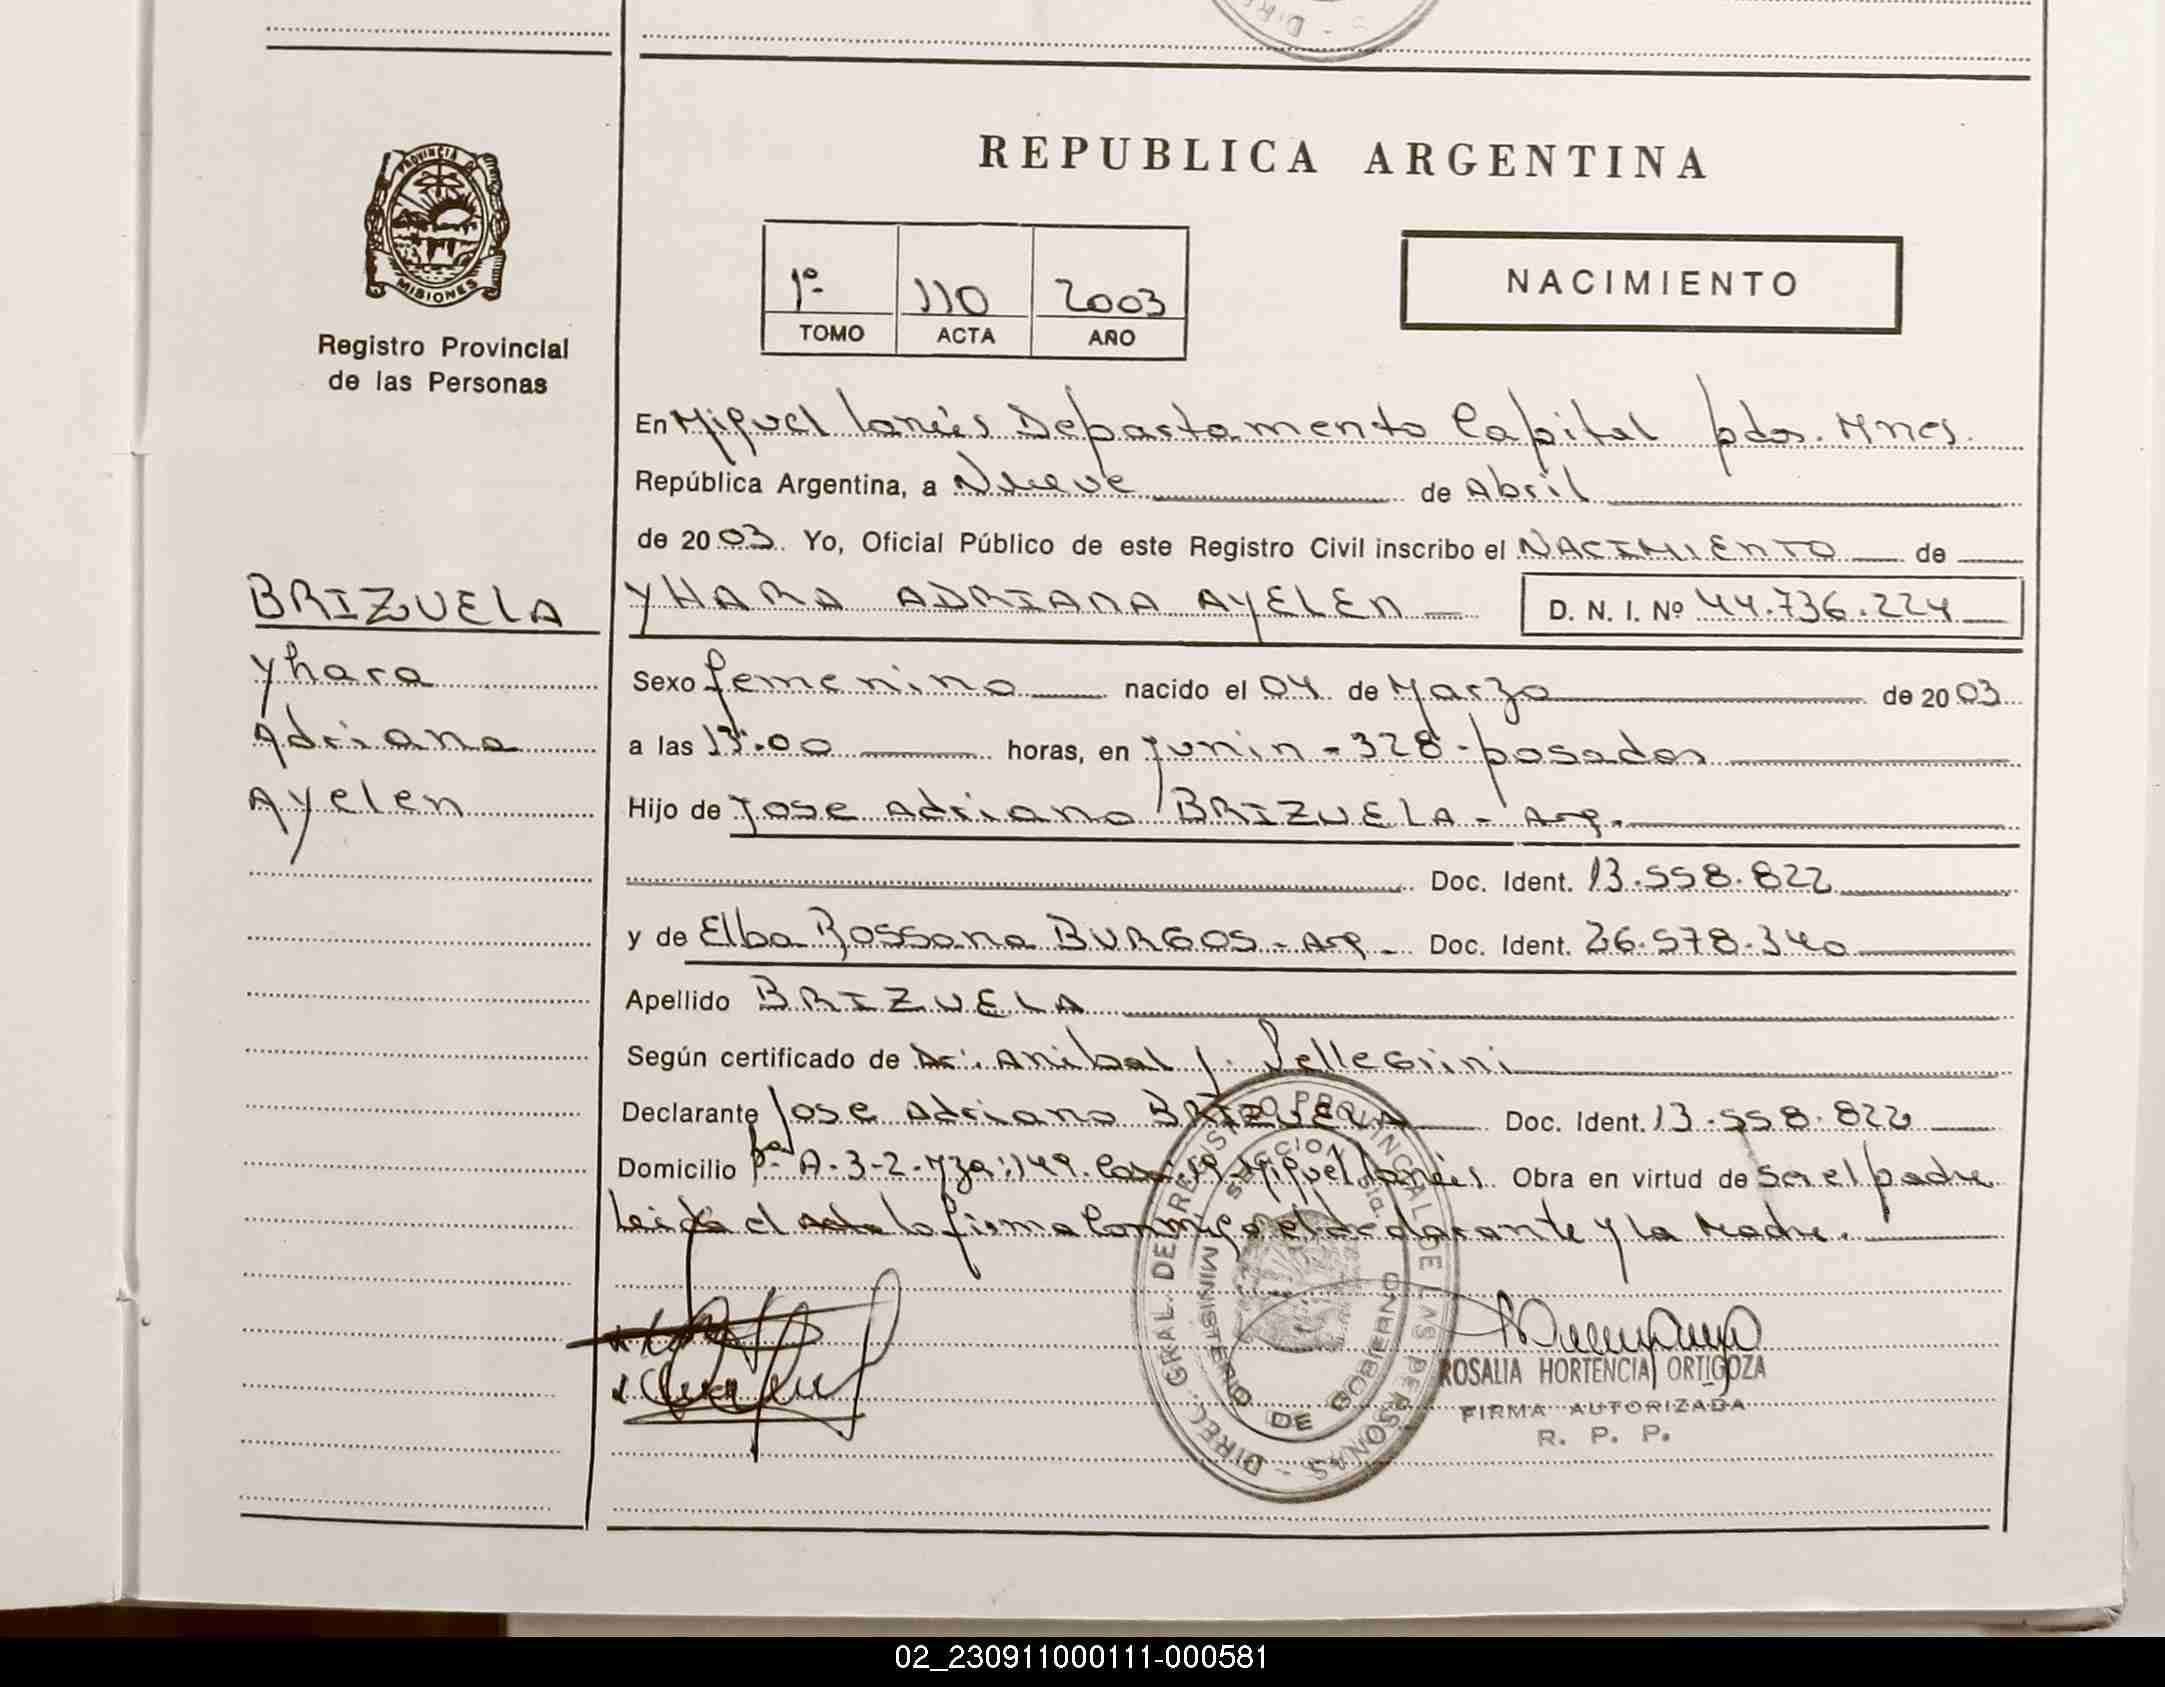 REPUBLICA ARGENTINA
PROVINCIA DE MISIONES
Registro Provincial
de las Personas
1º 110 2003
TOMO ACTA AÑO
NACIMIENTO
En Miguel Lanús Departamento Capital pdas. Mnes.
República Argentina, a Nueve de Abril
de 2003. Yo, Oficial Público de este Registro Civil inscribo el NACIMIENTO de
BRIZUELA
Yhara
Adriana
Ayelen
YHARA ADRIANA AYELEN D. N. I. Nº 44.736.224
Sexo femenino nacido el 04 de Marzo de 2003
a las horas, en Junin - 328 - posadas
Hijo de Jose Adriano BRIZUELA - Arg.
Doc. Ident. 13.558.822
y de Elba Rossana BURGOS - Arg - Doc. Ident. 26.578.340
Apellido BRIZUELA
Según certificado de Dr. Anibal J. Pellegrini
Declarante Jose Adriano BRIZUELA Doc. Ident. 13.558.822
Domicilio A-3-2-Mza: 149. Casa: Miguel Lanús. Obra en virtud de ser el padre
Leida el acta la firma conmigo el declarante y la Madre.
DIREC. GRAL. DEL REGISTRO PROVINCIAL DE LAS PERSONAS -
MINISTERIO DE GOBIERNO
ROSALIA HORTENCIA ORTIGOZA
FIRMA AUTORIZADA
R. P. P.
02_230911000111-000581